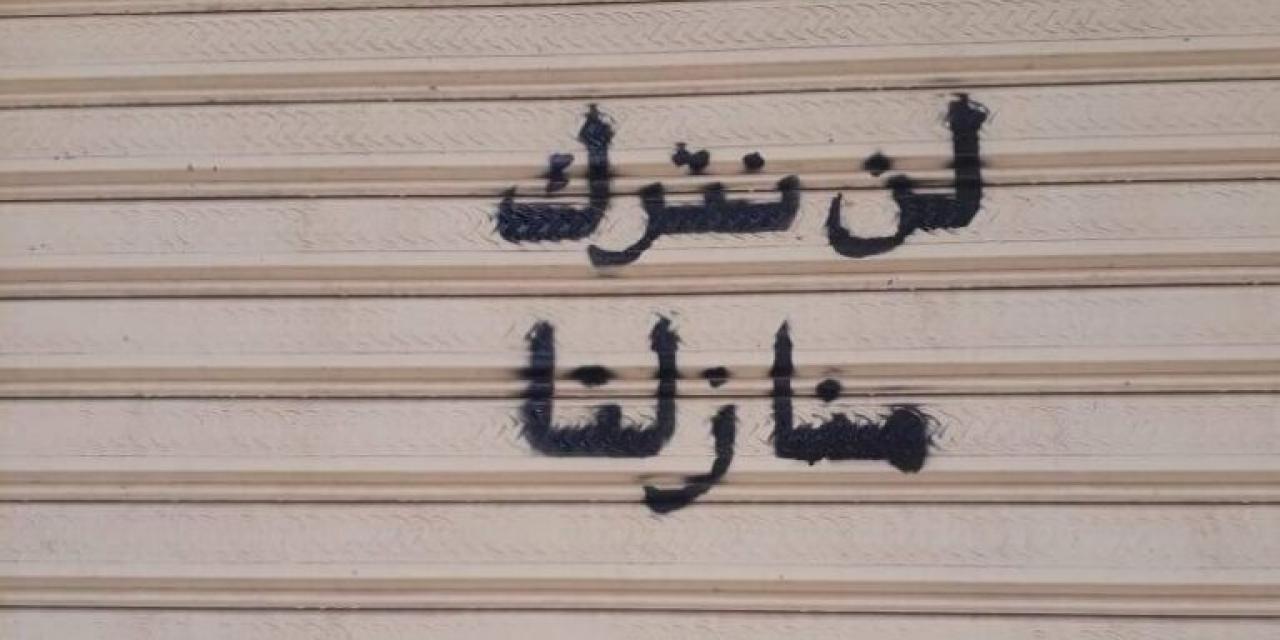 لن نترك
منازلنا